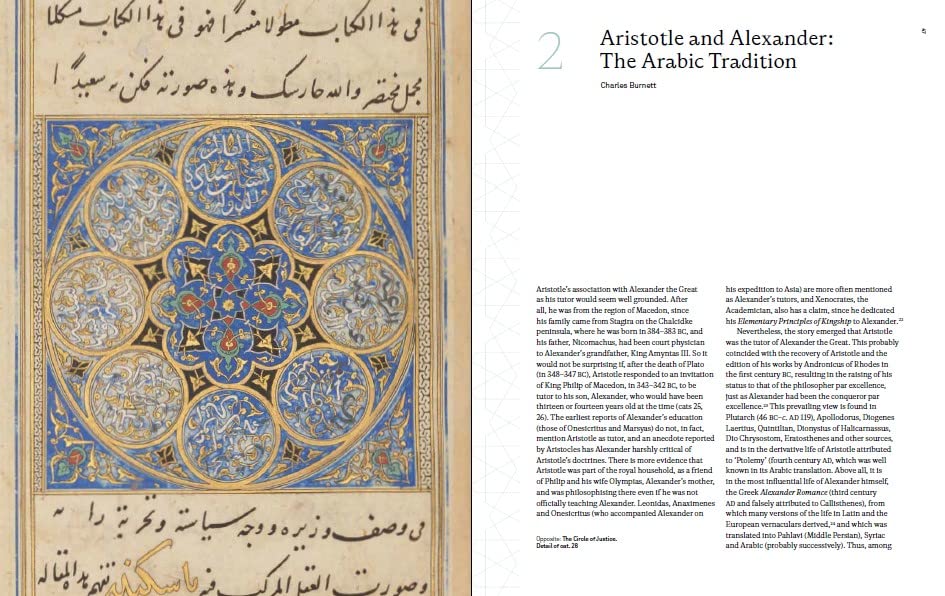 فى هذا الكتاب مطولا مفسرا فهو فى هذا الكتاب
مجمل مختصر والله حارسك وهذه صورته فكن به سعيدا
فى وصف وزيره ووجه سياسته وتجربة رايه
وصورت العقل المركب فيه تفهم هذا المقاله
2
Aristotle and Alexander:
The Arabic Tradition
Charles Burnett
Aristotle's association with Alexander the Great
as his tutor would seem well grounded. After
all, he was from the region of Macedon, since
his family came from Stagira on the Chalcidke
peninsula, where he was born in 384–383 BC, and
his father, Nicomachus, had been court physician
to Alexander's grandfather, King Amyntas III. So it
would not be surprising if, after the death of Plato
(in 348–347 BC), Aristotle responded to an invitation
of King Philip of Macedon, in 343–342 BC, to be
tutor to his son, Alexander, who would have been
thirteen or fourteen years old at the time (cats 25,
26). The earliest reports of Alexander's education
(those of Onesicritus and Marsyas) do not, in fact,
mention Aristotle as tutor, and an anecdote reported
by Aristocles has Alexander harshly critical of
Aristotle's doctrines. There is more evidence that
Aristotle was part of the royal household, as a friend
of Philip and his wife Olympias, Alexander's mother,
and was philosophising there even if he was not
officially teaching Alexander. Leonidas, Anaximenes
and Onesicritus (who accompanied Alexander on
Opposite: The Circle of Justice.
Detail of cat. 28
his expedition to Asia) are more often mentioned
as Alexander's tutors, and Xenocrates, the
Academician, also has a claim, since he dedicated
his Elementary Principles of Kingship to Alexander.²²
Nevertheless, the story emerged that Aristotle
was the tutor of Alexander the Great. This probably
coincided with the recovery of Aristotle and the
edition of his works by Andronicus of Rhodes in
the first century BC, resulting in the raising of his
status to that of the philosopher par excellence,
just as Alexander had been the conqueror par
excellence.²³ This prevailing view is found in
Plutarch (46 BC–c. AD 119), Apollodorus, Diogenes
Laertius, Quintilian, Dionysius of Halicarnassus,
Dio Chrysostom, Eratosthenes and other sources,
and is in the derivative life of Aristotle attributed
to 'Ptolemy' (fourth century AD, which was well
known in its Arabic translation. Above all, it is
in the most influential life of Alexander himself,
the Greek Alexander Romance (third century
AD and falsely attributed to Callisthenes), from
which many versions of the life in Latin and the
European vernaculars derived,²⁴ and which was
translated into Pahlavi (Middle Persian), Syriac
and Arabic (probably successively). Thus, among